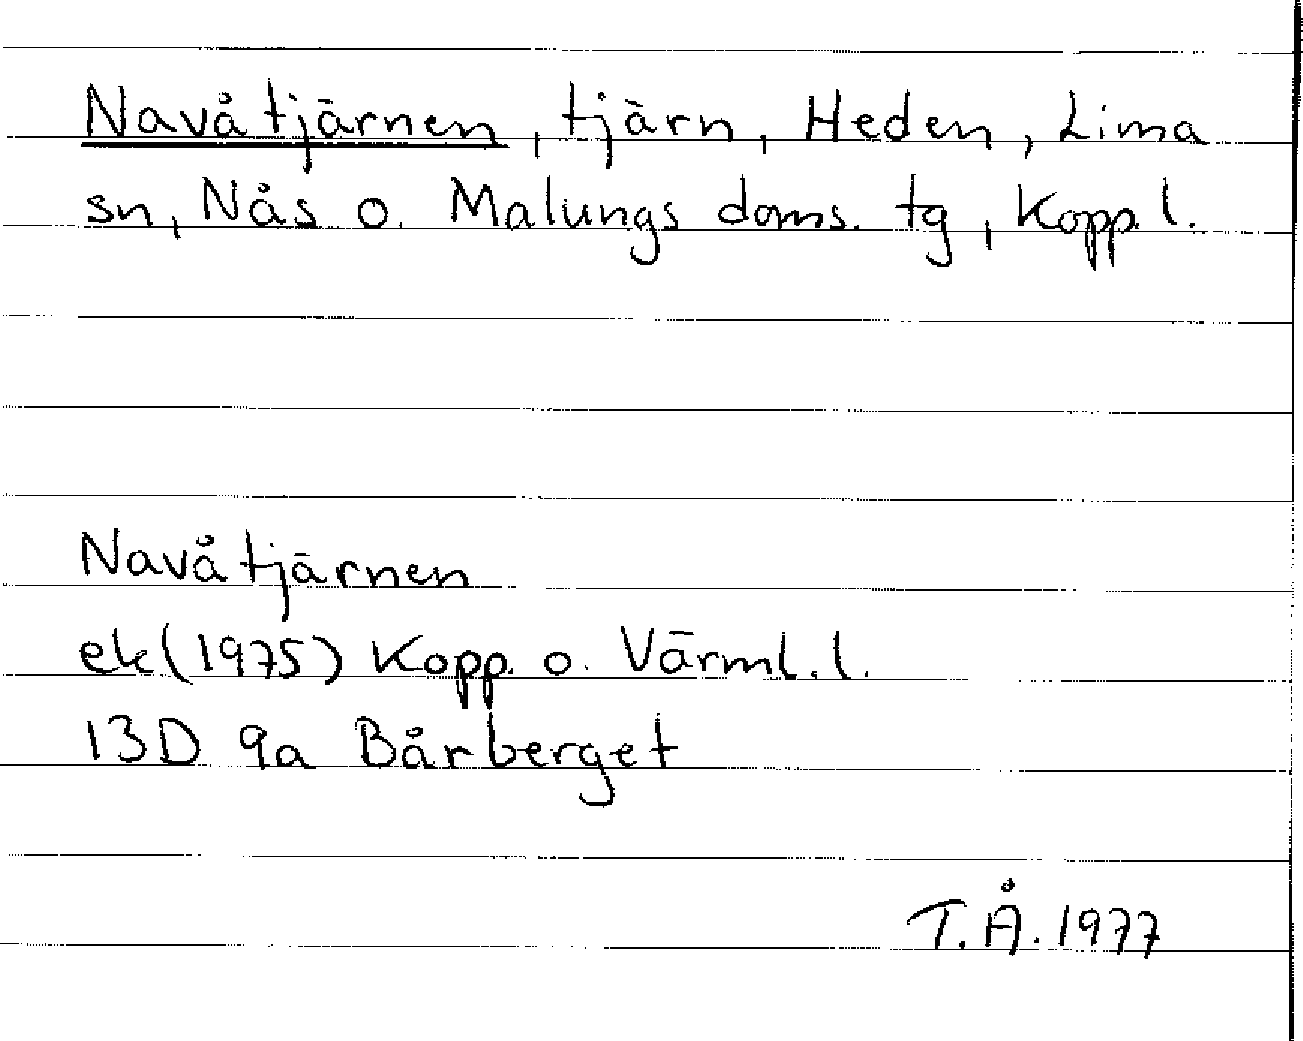 Navåtjärnen, tjärn, Heden, Lima
sn, Nås o. Malungs doms. tg, Kopp. l.
Navåtjärnen
ek (1975) Kopp. o. Värml. l.
13D 9a Bårberget
T.Å. 1977